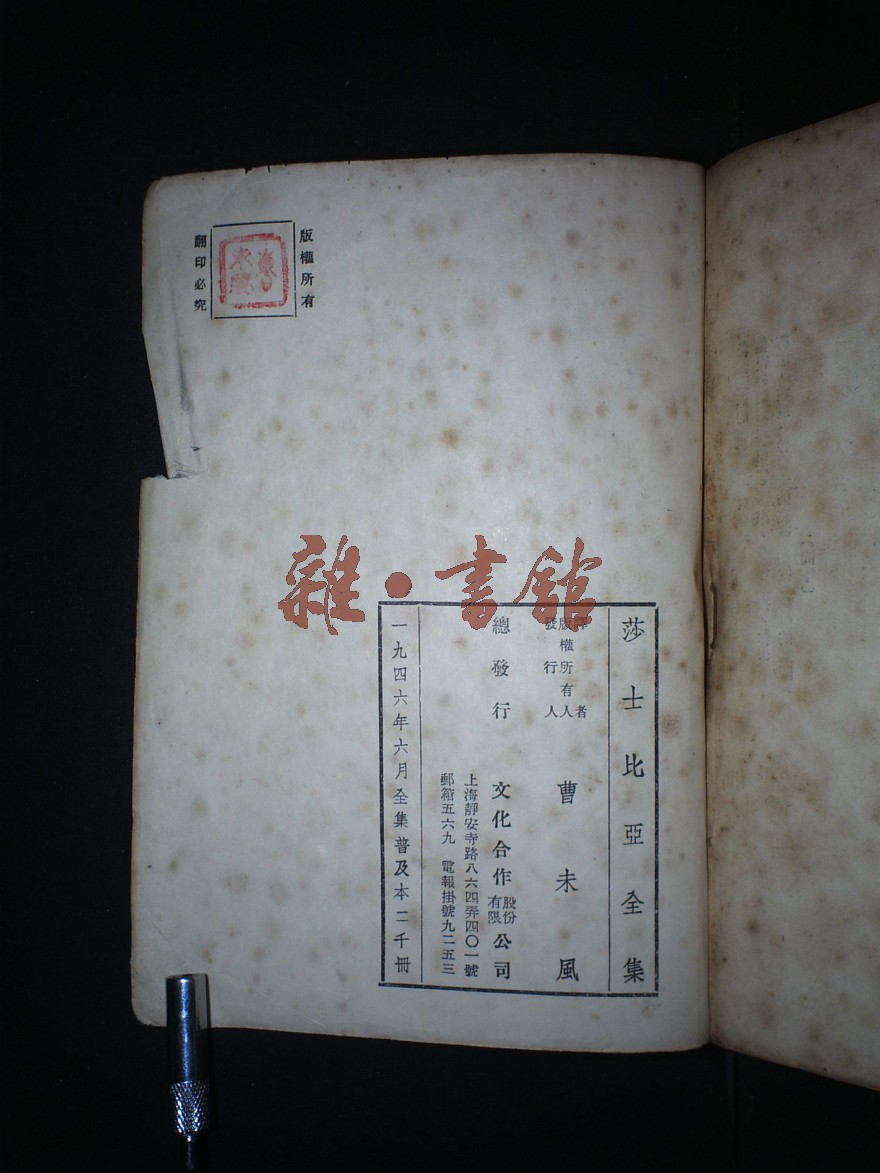 版權所有
翻印必究
雜•書館
莎士比亞全集
譯者
版權所有人
發行人
曹未風
總發行
文化合作股份有限公司
上海靜安寺路八六四弄四〇一號
郵箱五六九 電報掛號九二五三
一九四六年六月全集普及本二千冊